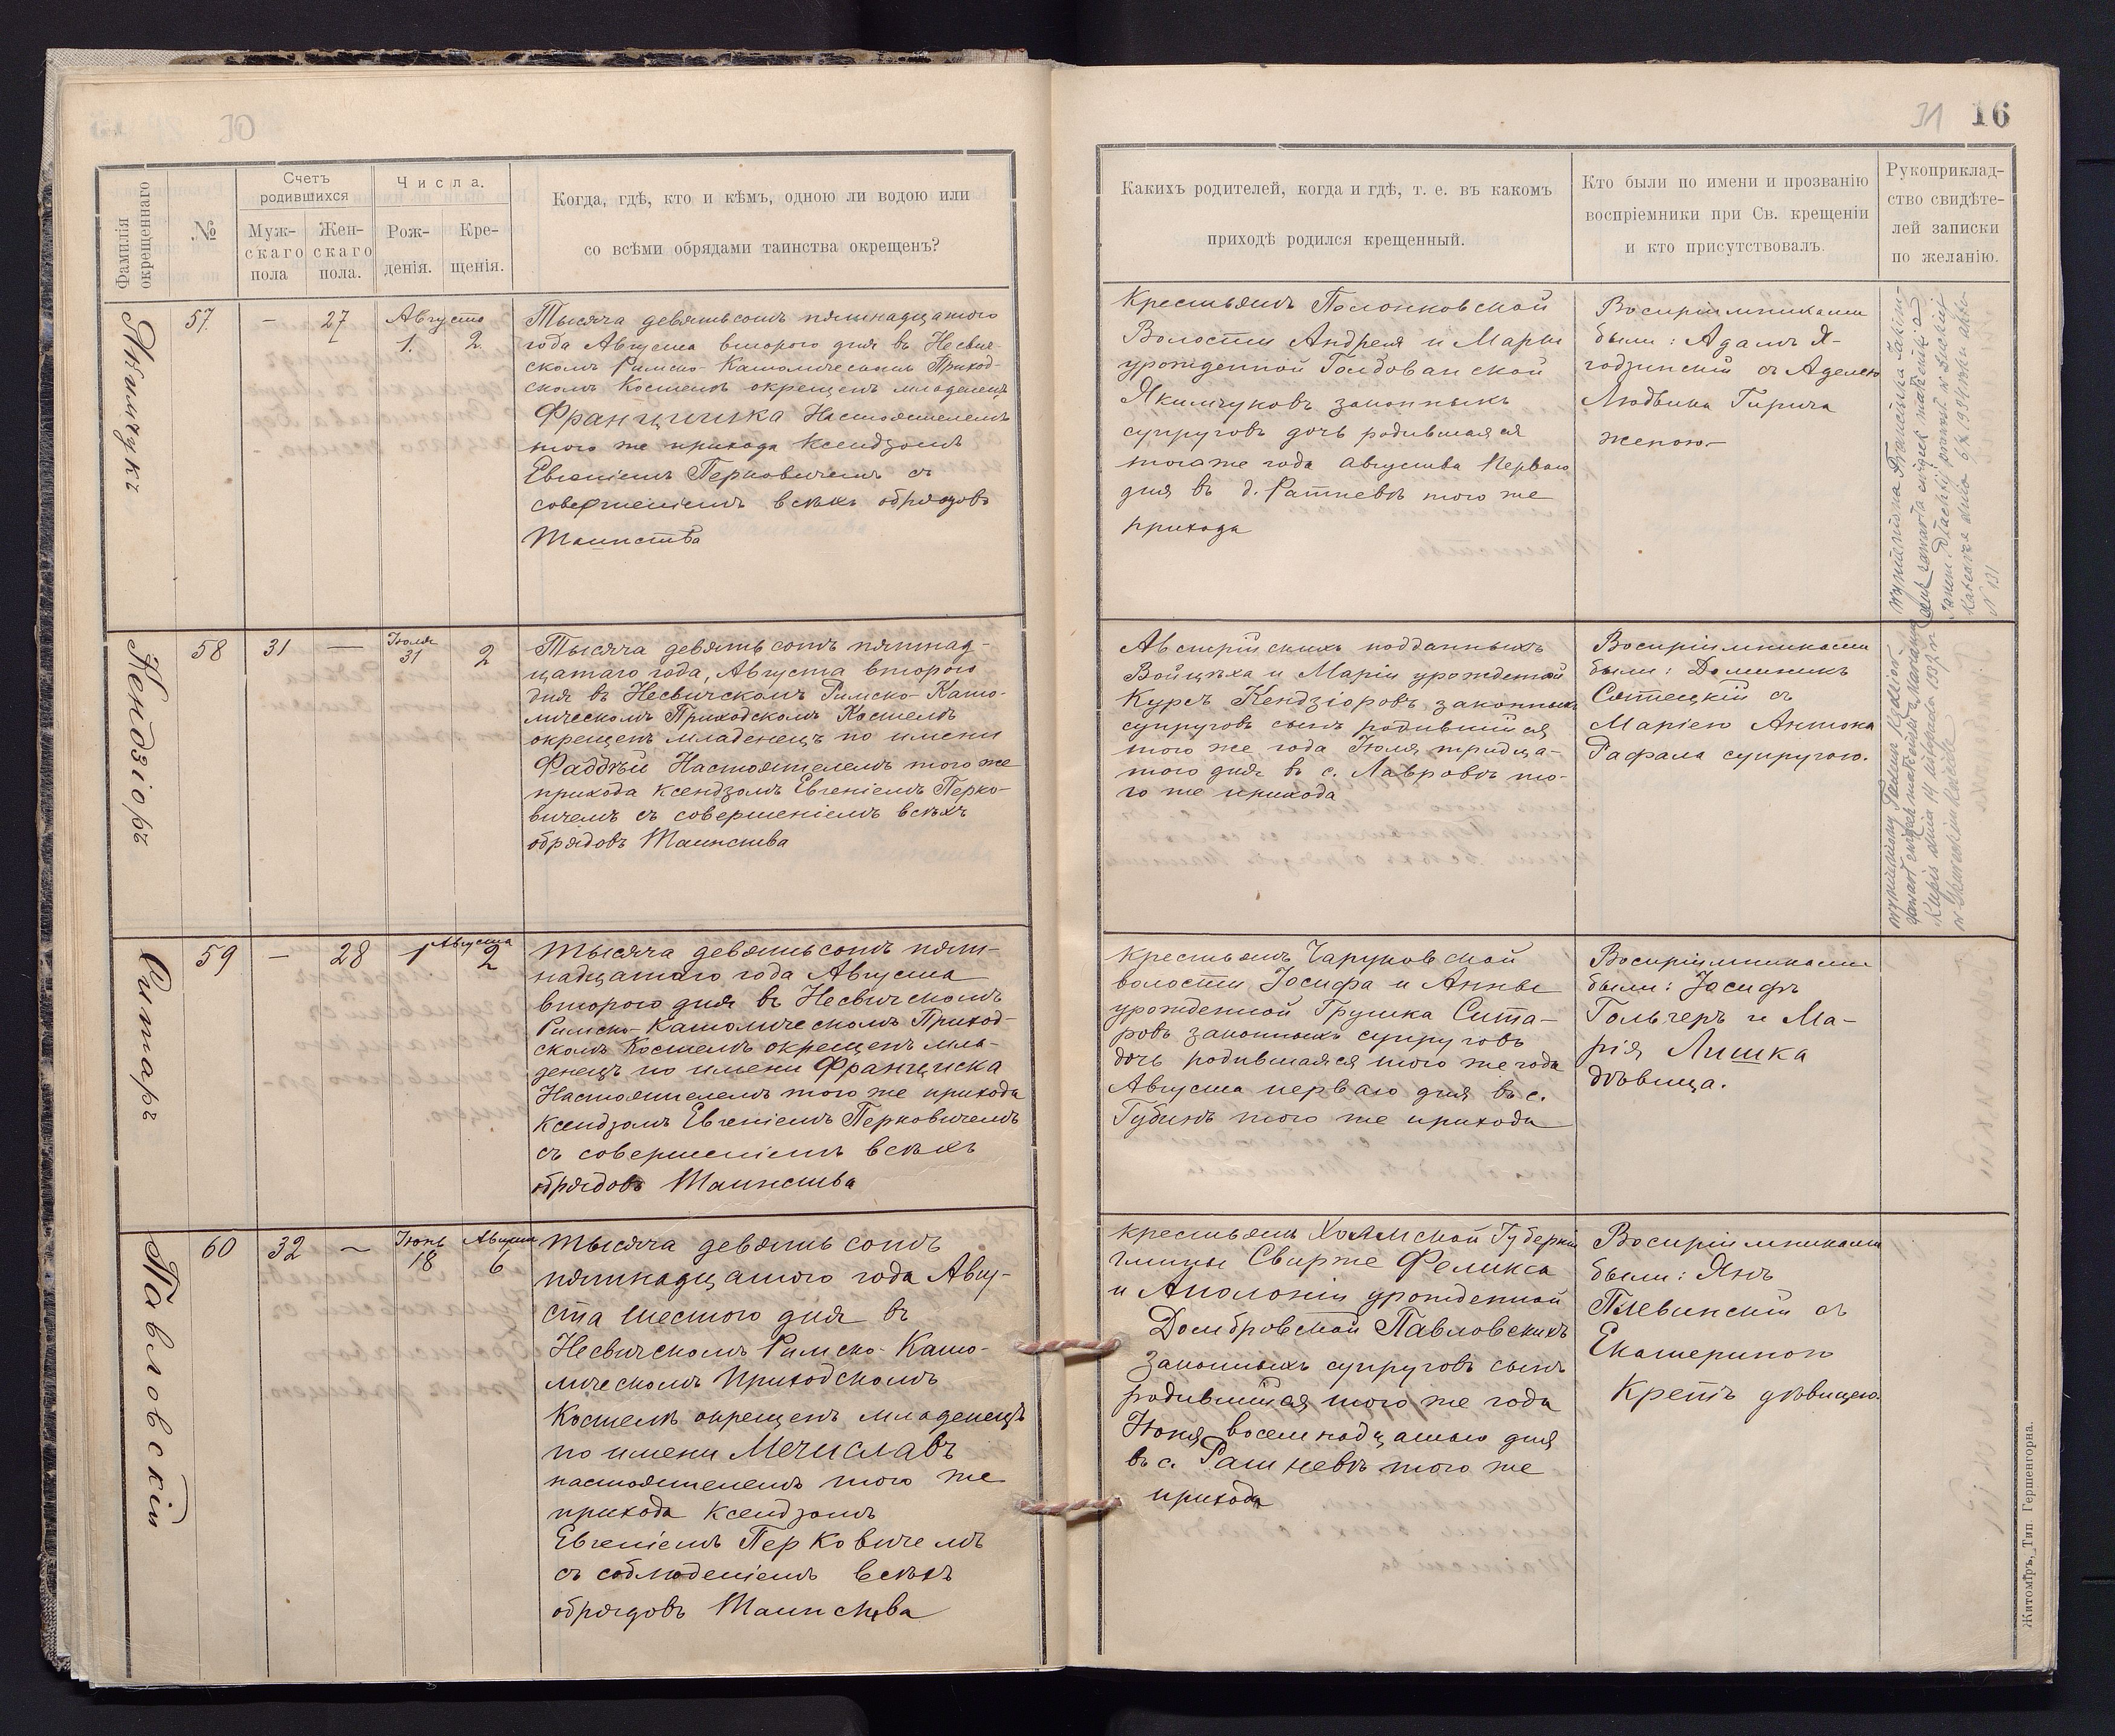 30
Фамилія окрещеннаго
№
Счетъ родившихся
Муж-
скаго
пола
Жен-
скаго
пола.
Числа.
Рож-
денія.
Кре-
щенія.
Когда, гдѣ, кто и кѣмъ, одною ли водою или
со всѣми обрядами таинства окрещенъ?
57.
—
27
Августа
1.
2
Тысяча девятьсотъ пятнадцатого
года Августа второго дня въ Несвич-
скомъ Римско-Католическомъ Приход-
скомъ Костелѣ окрещенъ младенецъ
Франциска Настоятелемъ
того же прихода Ксендзомъ
Евгеніемъ Перковичемъ съ
совершеніемъ всѣхъ обрядовъ
Таинства
Кендзіоръ
58
31
—
Іюля
31
2
Тысяча девятьсотъ пятнад-
цатаго года, Августа второго
дня въ Несвичскомъ Римско-Като-
лическомъ Приходскомъ Костелѣ
окрещенъ младенецъ по имени
Фаддѣй Настоятелемъ того же
прихода Ксендзомъ Евгеніемъ Перко-
вичемъ съ совершеніемъ всѣхъ
обрядовъ Таинства
Ситаръ
59
—
28
1
Августа
2
Тысяча девятьсотъ пят-
надцатаго года Августа
второго дня въ Несвичскомъ
Римско-Католическомъ Приход-
скомъ Костелѣ окрещенъ мла-
денецъ по имени Франциска
Настоятелемъ того же прихода
Ксендзомъ Евгеніемъ Перковичемъ
съ совершеніемъ всѣхъ
обрядовъ Таинства
Павловскій
60
32
—
Іюнь
18
Августа
6
Тысяча девятьсотъ
пятнадцатого года Авгу-
ста шестого дня въ
Несвичскомъ Римско-Като-
лическомъ Приходскомъ
Костелѣ окрещенъ младенецъ
по имени Мечиславъ
настоятелемъ того же
прихода Ксендзомъ
Евгеніемъ Перковичемъ
съ соблюденіемъ всѣхъ
обрядовъ Таинства
31 16
Какихъ родителей, когда и гдѣ, т. е. въ какомъ
приходѣ родился крещенный.
Кто были по имени и прозванію
воспріемники при Св. крещеніи
и кто присутствовалъ.
Рукоприклад-
ство свидѣте-
лей записки
по желанію.
Крестьянъ Полонковской
Волости Андрея и Маріи
урожденной Голдованской
Якимчуковъ законныхъ
супруговъ дочь родившаяся
тогоже года августа Перваго
дня въ д. Ратневѣ того же
прихода
Воспріимниками
были: Адамъ Я-
годзинскій съ Аделею
Людвика Гирича
женою.—
N 131
Австрійскихъ подданныхъ
Войцѣха и Маріи урожденной
Курсъ Кендзіоровъ законныхъ
супруговъ сынъ родившійся
того же года Іюля тридца-
того дня въ с. Лавровѣ то-
го же прихода
Воспріимниками
были: Доминикъ
Сѣтецкій съ
Маріею Антона
Рафала супругою.
Крестьянъ Чаруковской
волости Іосифа и Анны
урожденной Грушка Сита-
ровъ законныхъ супруговъ
дочь родившаяся того же года
Августа перваго дня въ с.
Губинѣ того же прихода
Воспріимниками
были: Іосифъ
Гольчеръ и Ма-
рія Лишка
дѣвица.
крестьянъ Холмской Губерніи
гмины Свирже Феликса
и Аполоніи урожденной
Домбровской Павловскихъ
законныхъ супруговъ сынъ
родившійся того же года
Іюня восемнадцатаго дня
въ с. Ратневѣ того же
прихода
Воспріимниками
были: Янъ
Плевинскій съ
Екатериною
Крепъ дѣвицею.
Житоміръ, Тип. Гершенгорна.